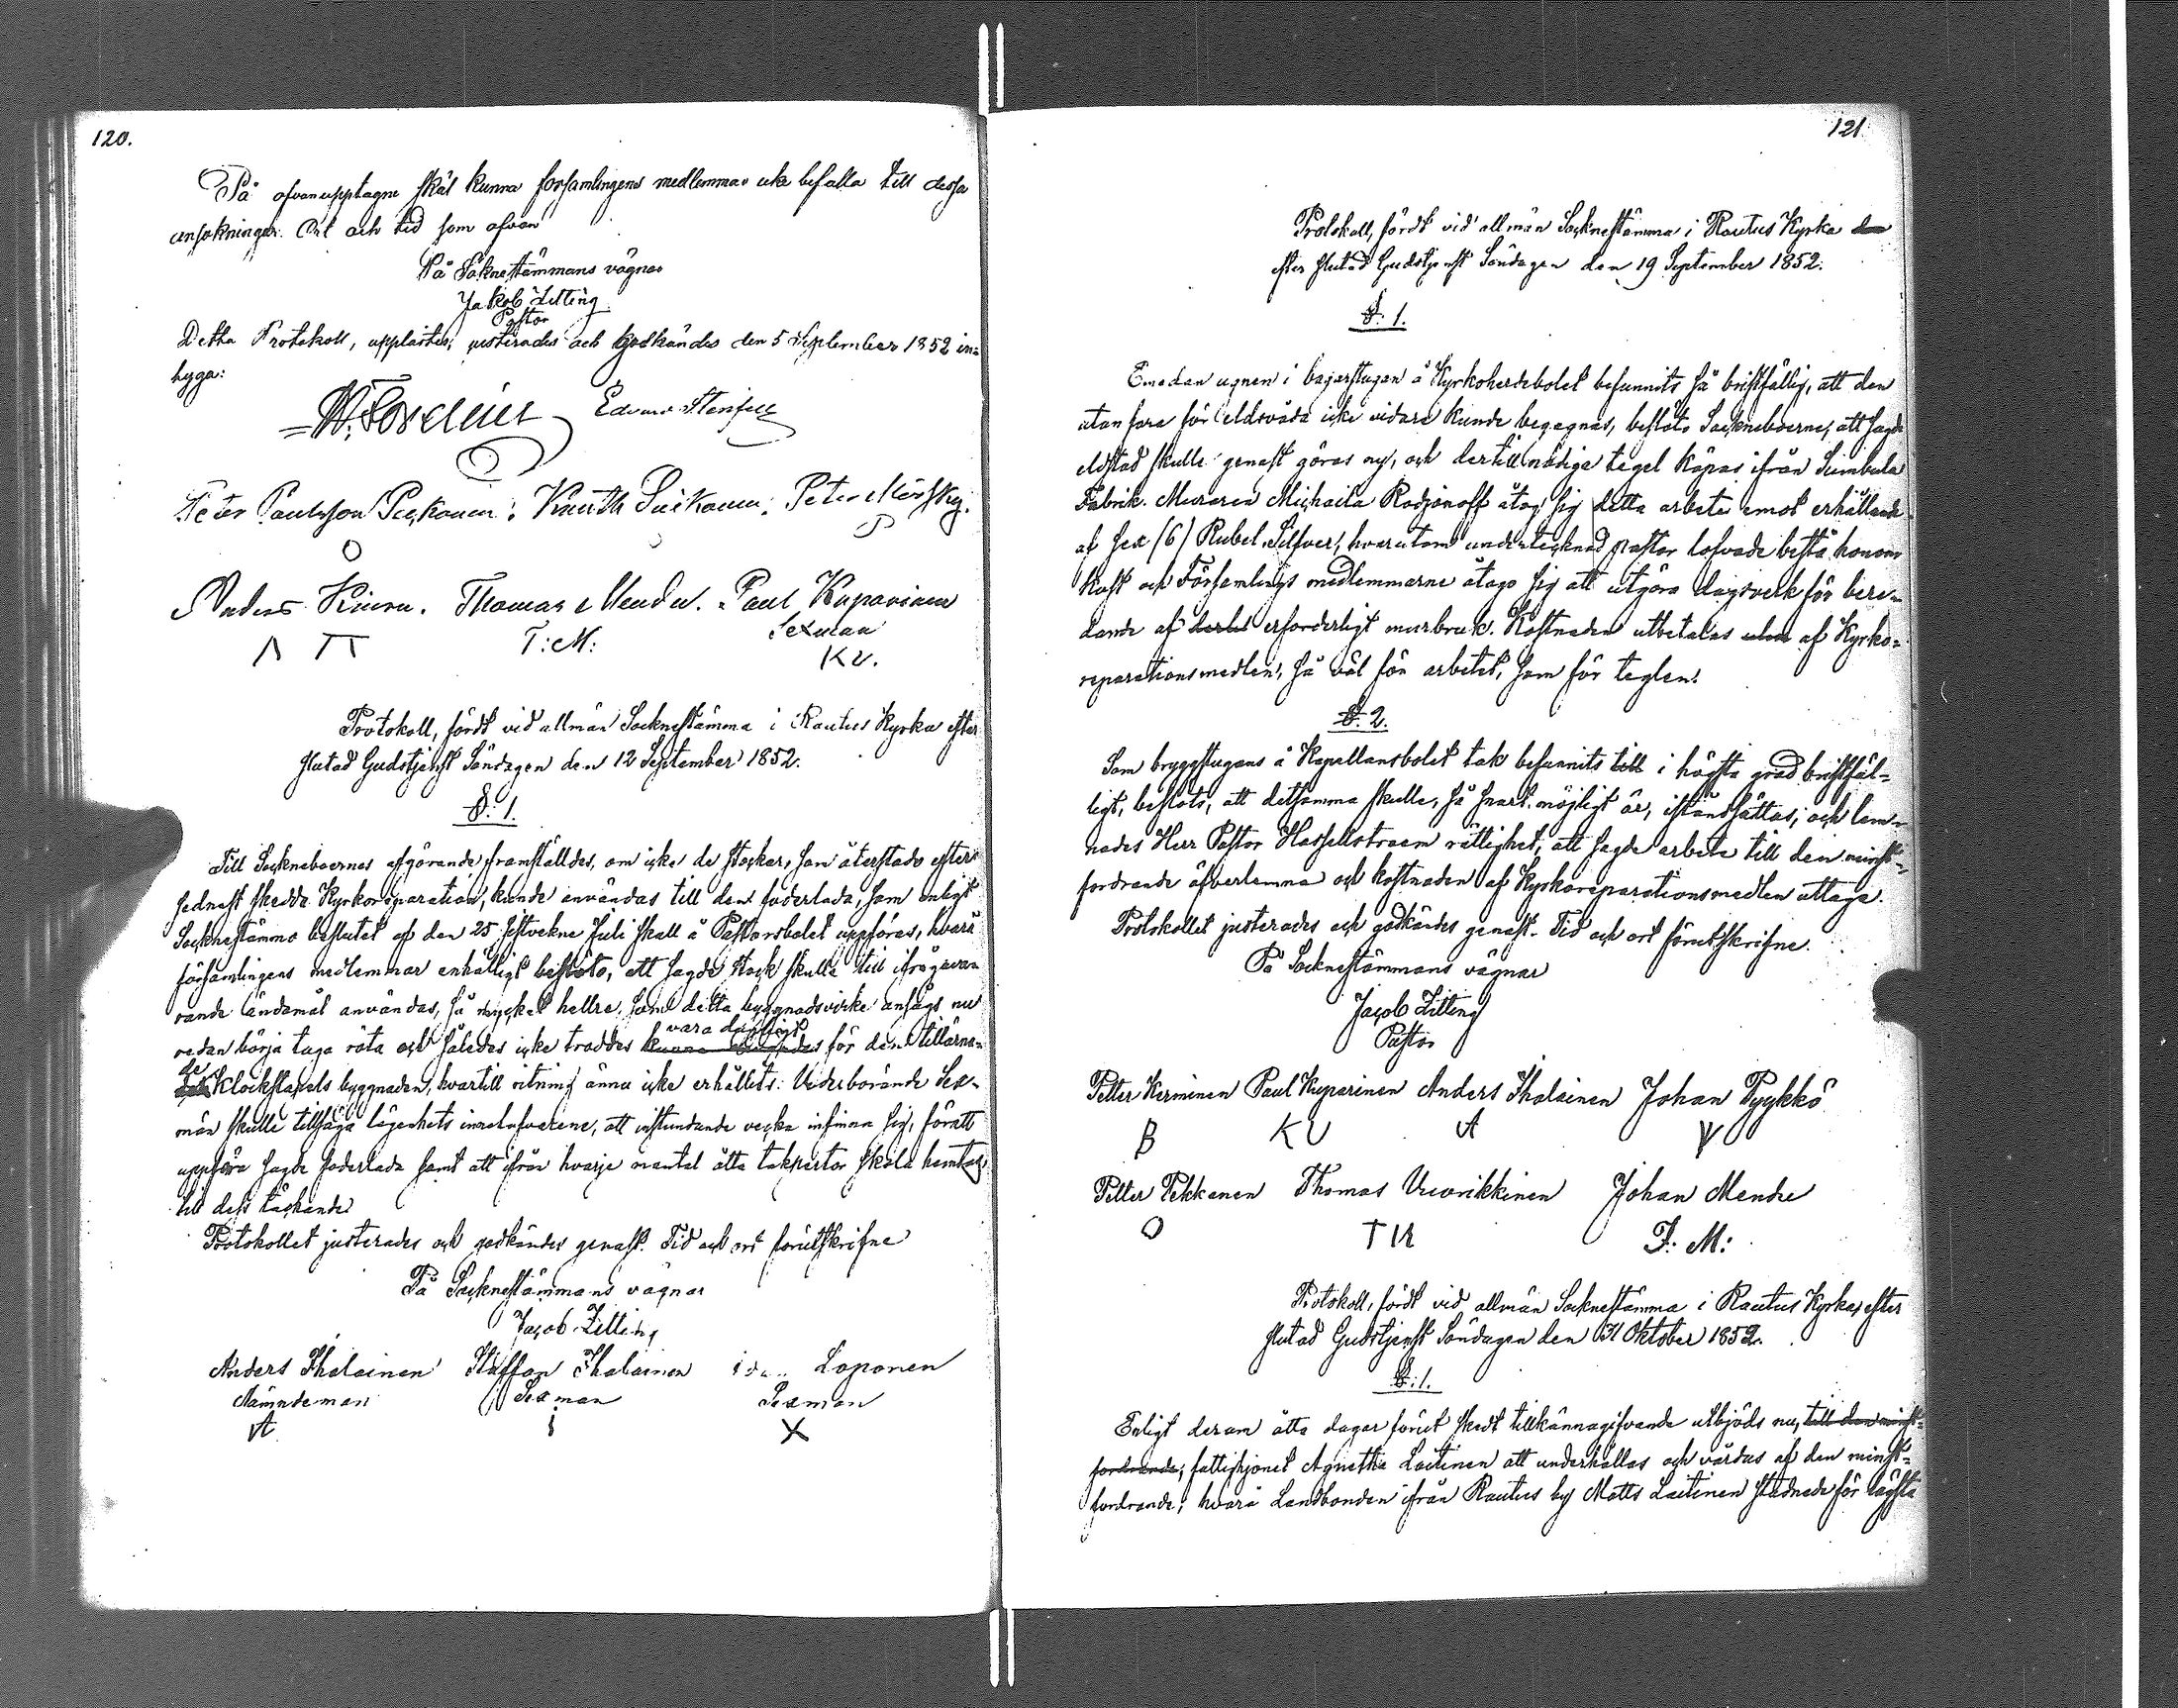 120.
På ofvanupptagne skäl kunna församlingens medlemmar icke befalla till dessa
ansökningar. Ort och tid som ofvan
På Soknestämmans vägnar
Jakob Zitting
Pastor
Detta Protokoll, upplästes, justerades och godkändes den 5 September 1852 in-
tyga:
Edvard
Peter Paulsson Peckanen: Knuth Suikanen: Peter
O
Anders Kiuru. Thomas Mendu. Paul Kuparinen
Sexman
T: M: KU.
Protokoll, fördt vid allmän Socknestämma i Rautus Kyrka efter
slutad Gudstjenst Söndagen den 12 September 1852.
§. 1.
Till Sockneboernes afgörande framställdes, om icke de stockar, som återstodo efter
sednast skedda Kyrkoreparation, kunde användas till den foderlada, som enligt
Socknestämmo beslutet af den 25 sistvekne Juli skall å Pastorsbolet uppföras, hvarå
församlingens medlemmar enhälligt beslöto, att sagde stock skulle till ifrågavar
rande ändamål användas, så mycket hellre, som detta byggnadsvirke ansågs nu
redan börja taga röta och således icke troddes kunna vara dugligt för den tillärna-
de Klockstapels byggnaden, hvartill ritning ännu icke erhållits. Vederborande Sex-
män skulle tillsäga lägenhets innehafvarene, att instundande vecka infinna sig, föratt
uppföra sagde foderlada samt att ifrån hvarje mantal åtta takpertor skola hemtas
till dess täckande
Protokollet justerades och godkändes genast. Tid och ort förutskrifne
På Socknestämmans vägnar
Jacob Zitting
Anders Ihalainen Staffan Ihalainen Loponen
Nämndeman Sexman Sexman
A i X
121
Protokoll, fördt vid allmän Socknestämma i Rautus Kyrka den
efter slutad Gudstjenst Söndagen den 19 September 1852.
§. 1.
Emedan ugnen i bagarstugan å Kyrkoherdebolet befunnits så bristfällig, att den
utan fara för eldsvåda icke vidare kunde begagnas, beslöto Sockneboerne, att sagde
eldstad skulle genast göras ny, och dertill nödiga tegel köpas ifrån Sumbula
Fabrik. Muraren Michaila Rodjonoff åtog sig detta arbete emot erhållande
af sex (6) Rubel Silfver, hvarutom undertecknad pastor lofvade bestå honom
kost och Församlings medlemmarne åtogo sig att utgöra dagsverk för bere-
dande af erforderligt murbruk. Kostnaden utbetalas af Kyrko-
reparationsmedlen, så väl för arbetet, som för teglen.
§. 2.
Som bryggstugans å Kapellansbolet tak befunnits till i högsta grad bristfäl-
ligt, beslöts, att detsamma skulle, så snart möjligt är, iståndsättas, och lem-
nades Herr Pastor Hassellstroem rättighet, att sagde arbete till den minst-
fordrande öfverlemna och kostnaden af Kyrkoreparationsmedlen uttaga.
Protokollet justerades och godkändes genast. Tid och ort förutskrifne.
På Socknestämmans vägnar
Jacob Zitting
Pastor
Petter Kerminen Paul Kuparinen Anders Ihalainen Johan Pyykkö
B KU A
Petter Pekkanen Thomas Vuorikkinen Johan Mendu
O TU J: M:
Protokoll, fördt vid allmän Socknestämma i Rautus Kyrka, efter
slutad Gudstjenst Söndagen den 31 Oktober 1852.
§: 1.
Enligt derom åtta dagar förut skedt tillkännagifvande utbjöds nu, till den minst-
fordrande, fattighjonet Agnetha Laitinen att underhållas och vårdas af den minst-
fordrande; hvarå Landbonden ifrån Rautus by Matts Laitinen stadnade för lägsta